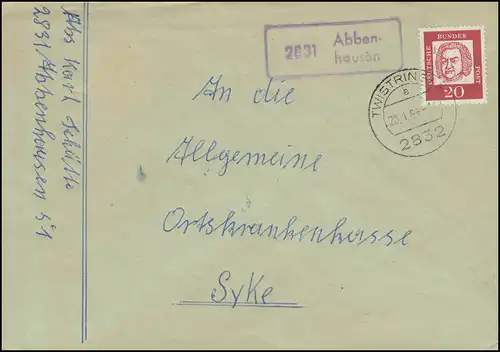 Abs Karl Schütte
2831 Abbenhausen 51
2831 Abben-
hausen
DEUTSCHE BUNDES POST
20
TWISTRINGEN
a
2832
An die
Allgemeine
Ortskrankenkasse
Syke